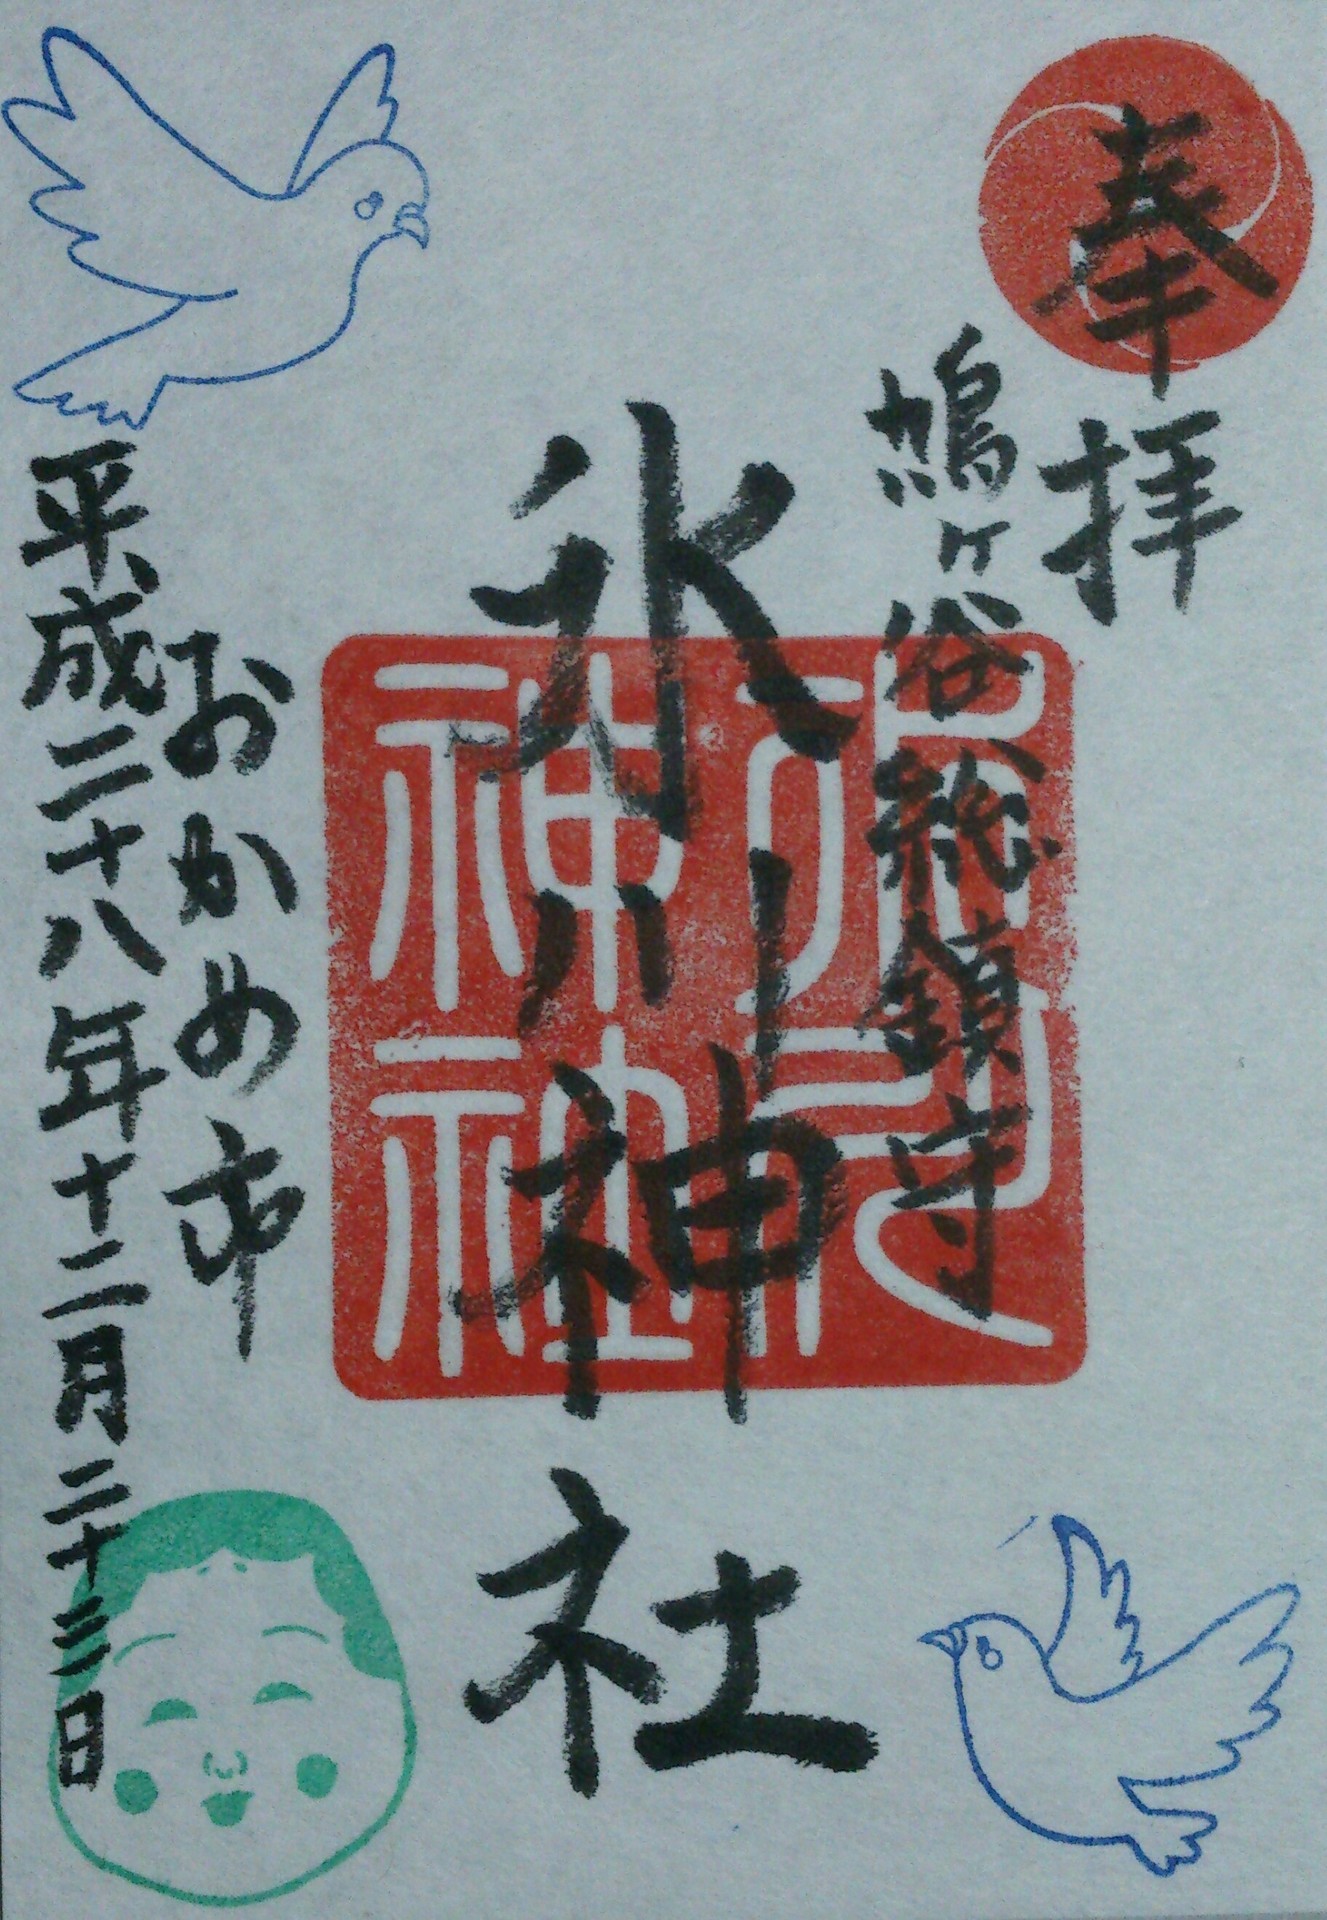 奉拝
鳩ヶ谷総鎮守
氷川神社
氷川
神社
おかめ市
平成二十八年十二月二十三日